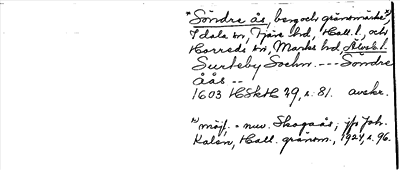 *Söndre ås, berg och gränsmärke*),
Idala sn, Fjäre hd, Hall. l., och
Horreds sn, Marks hd, Älvsb. l.
Surteby Sochn. --- Söndre
åås --
1603 HSkH 29, s. 81. avskr.
*) möjl. = nuv. Skogaås; jfr Joh.
Kalén, Hall. gränsm., 1924, s. 96.